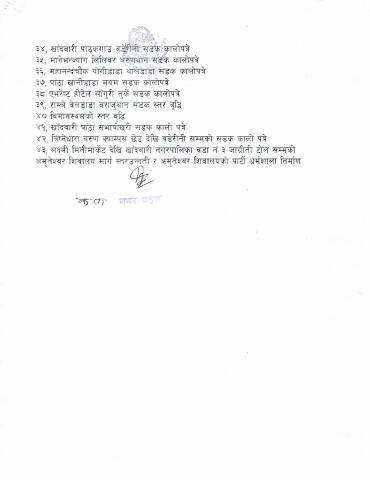 ३४, खाँदवारी पाठकगाउ बडेरीनी सडक कालोपत्रे
३५, मानेभन्ज्याग लिलिवर अरुणथान सडक कालोपत्रे
३६, महानन्दचौक योगीडाडा थालेडाडा सडक कालोपत्रे
३७, पाठा खानीडाडा मयम सडक कालोपत्रे
३८ एभरेष्ट होटेल सांगुरी तुर्के सडक कालोपत्रे
३९, राम्चे बेलडाडा बराजुथान सडक स्तर वृद्धि
४० विमानस्थलको स्तर वृद्धि
४१, खाँदवारी पाठा सभापोखरी सडक कालो पत्रे
४२, विघ्नेधारा वरुण क्याम्पस छेउ देखि बडेरीनी सम्मको सडक कालो पत्रे
४३, लक्ष्मी मिनीमार्केट देखि खाँदवारी नगरपालिका वडा न ३ जाग्रीती टोल सम्मको
अमृतेश्वर शिवालय मार्ग स्तरउन्नती र अमृतेश्वर शिवालयको पार्टी धर्मशाला निर्माण